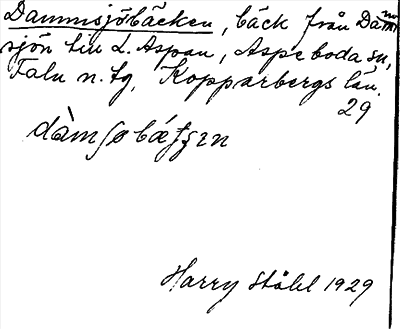 Dammsjöbäcken, bäck från Damm
sjön till L. Aspan, Aspeboda sn,
Falu n. tg, Kopparbergs län.
29
Harry Ståhl 1929